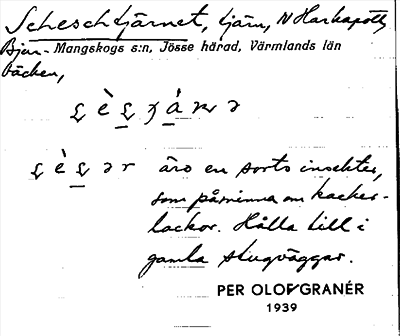 Scheschtjärnet, tjärn, N Harkapött,
Bjur- Mangskogs s:n, Jösse härad, Värmlands län
bäcken,
äro en sorts insekter,
som påminna om kacker-
lackor. Hålla till i
gamla stugväggar.
PER OLOF GRANÉR
1939